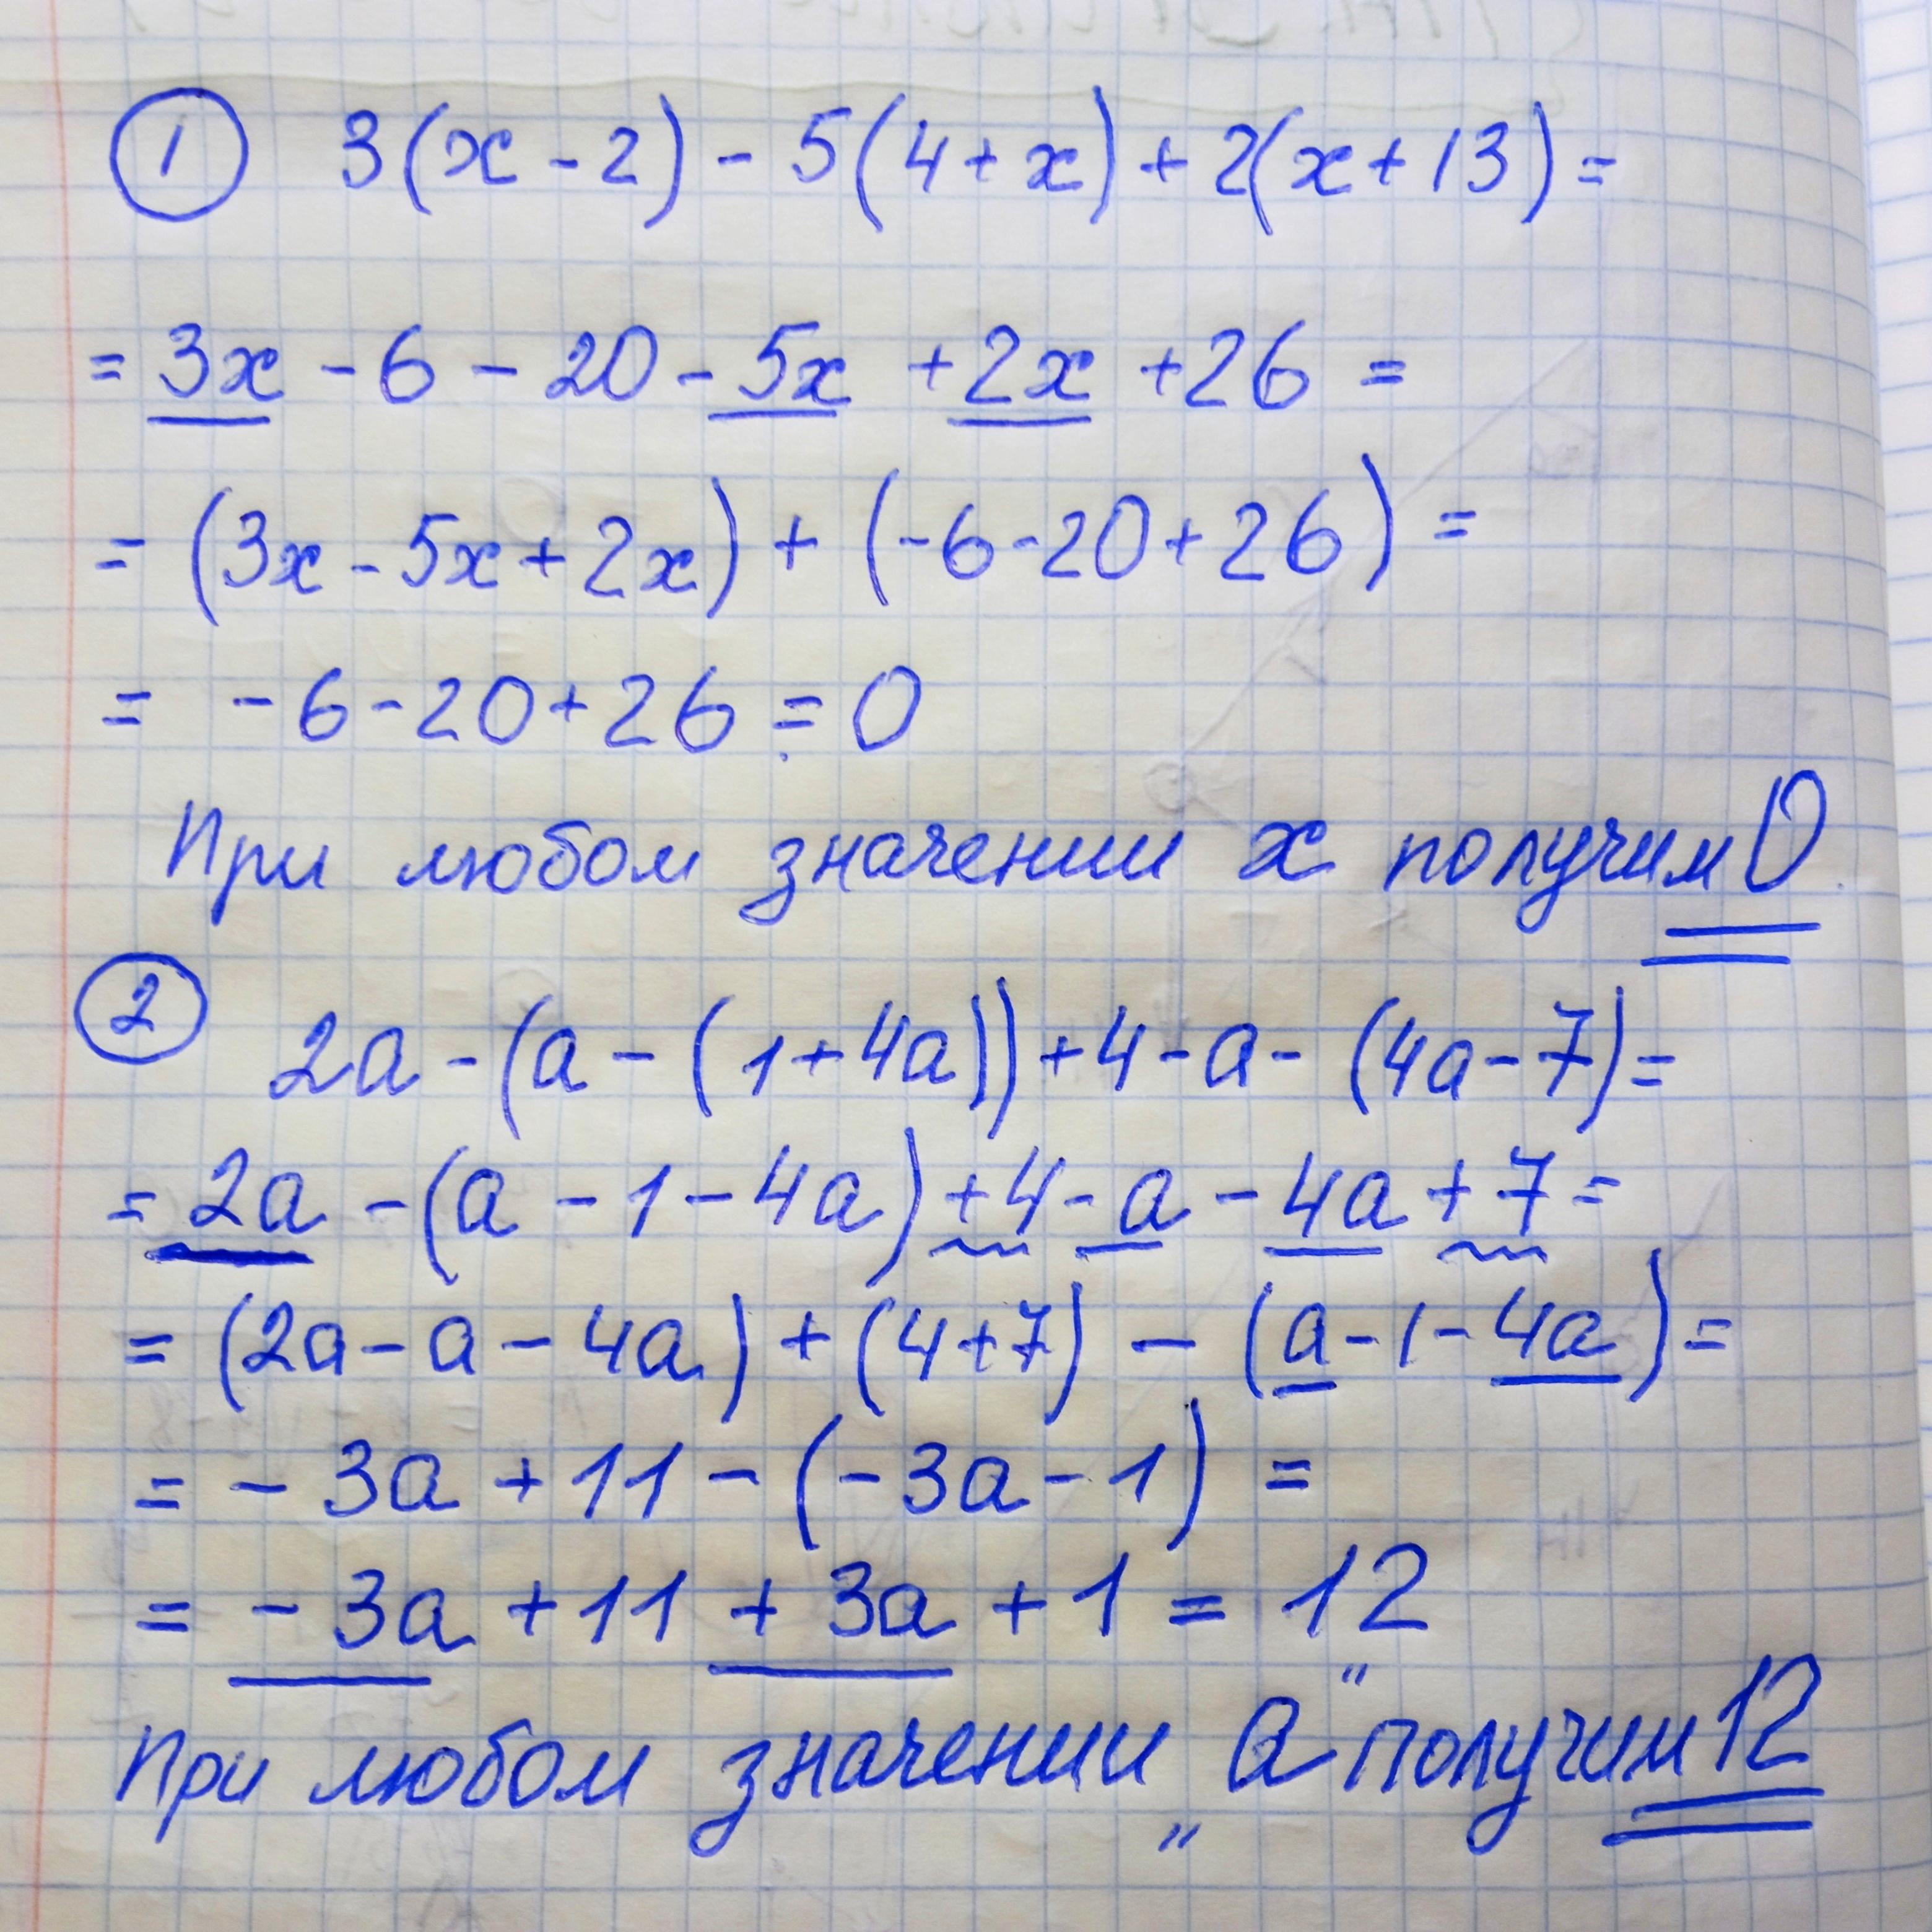 1 3(x-2)-5(4+x)+2(x+13)=
=3x-6-20-5x+2x+26=
=(3x-5x+2x)+(-6-20+26)=
= -6-20+26=0
При любом значении x получим 0.
2 2a-(a-(1+4a))+4-a-(4a-7)=
=2a-(a-1-4a)+4-a-4a+7=
=(2a-a-4a)+(4+7)-(a-1-4a)=
=-3a+11-(-3a-1)=
=-3a+11+3a+1=12
При любом значении „a" получим 12